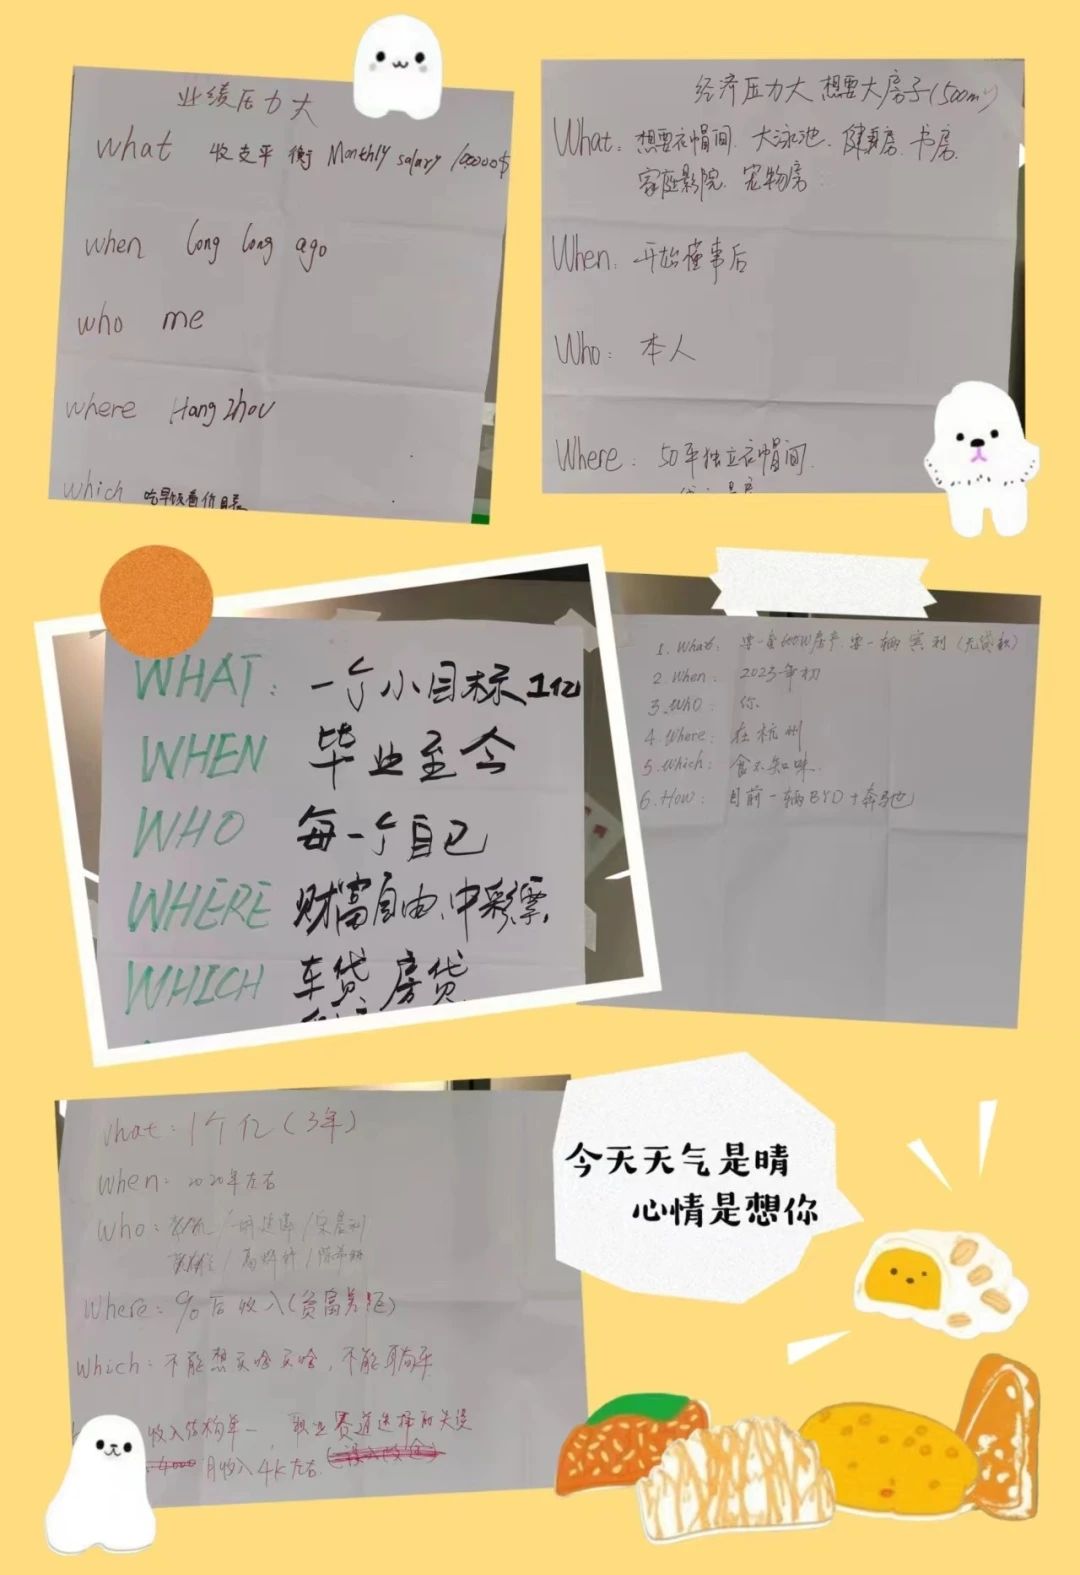 业绩压力大
what 收支平衡 Monthly salary
when long long ago
who me
where HangZhou
which 吃早饭看价目表
经济压力大 想要大房子(500m²)
What: 想要衣帽间、大泳池、健身房、书房、
家庭影院、宠物房
When: 开始懂事后
Who: 本人
Where: 50平独立衣帽间
WHAT: 一个小目标1亿
WHEN 毕业至今
WHO 每一个自己
WHERE 财富自由、中彩票、
WHICH 车贷、房贷
1. What: 要一套600W房产、要一辆宾利(无贷款)
2. When: 2023年初
3. WhO: 你
4. Where: 在杭州
5. Which: 食不知味
6. How: 目前一辆BYD+奔驰
what: 1个亿(3年)
when: 2020年左右
Who:
Where: 90后收入(贫富差距)
which: 不能想买啥买啥,不能
收入结构单一, 职业赛道选择的失误
月收入4K左右
今天天气是晴
心情是想你